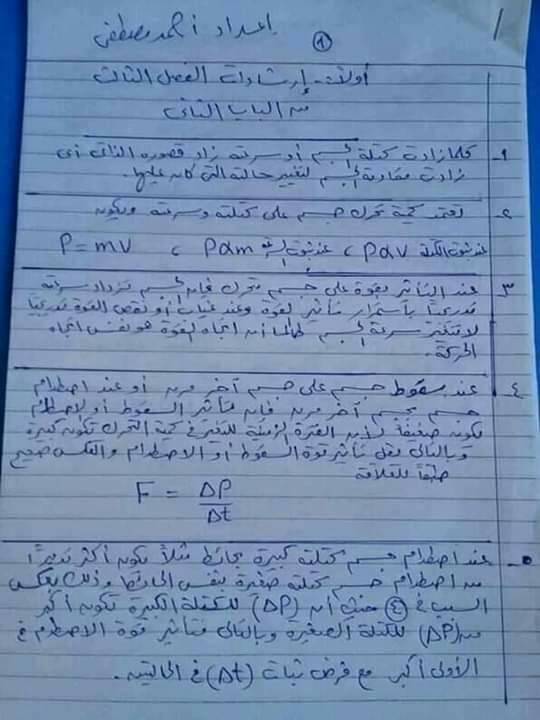 إعداد أحمد مصطفى
١
أولاً:- إرشادات الفصل الثالث
من الباب الثانى
١- كلما زادت كتلة الجسم أو سرعته زاد قصوره الذاتى أى
زادت مقاومة الجسم لتغيير حالته التى كان عليها.
٢- تعتمد كمية تحرك جسم على كتلته وسرعته ويكون
عند ثبوت الكتلة P α v ، عند ثبوت السرعة P α m ، P = mv
٣- عند التأثير بقوة على جسم متحرك فإن الجسم تزداد سرعته
تدريجياً باستمرار تأثير القوة وعند غياب أو نقص القوة تدريجياً
لا تتغير سرعة الجسم طالما أن اتجاه القوة هو نفس اتجاه
الحركة.
٤- عند سقوط جسم على جسم آخر مرن أو عند اصطدام
جسم بجسم آخر مرن فإن تأثير السقوط أو الاصطدام
تكون ضعيفة لأن الفترة الزمنية للتغير فى كمية التحرك تكون كبيرة
وبالتالى يقل تأثير قوة السقوط أو الاصطدام والعكس صحيح
طبقاً للعلاقة
F = ΔP / Δt
٥- عند اصطدام جسم كتلته كبيرة بحائط مثلاً يكون أكثر تدميراً
من اصطدام جسم كتلته صغيرة بنفس الحائط وذلك بعكس
السبب فى ④ حيث أن (ΔP) للكتلة الكبيرة تكون أكبر
من (ΔP) للكتلة الصغيرة وبالتالى فتأثير قوة الاصطدام فى
الأولى أكبر مع فرض ثبات (Δt) فى الحالتين.